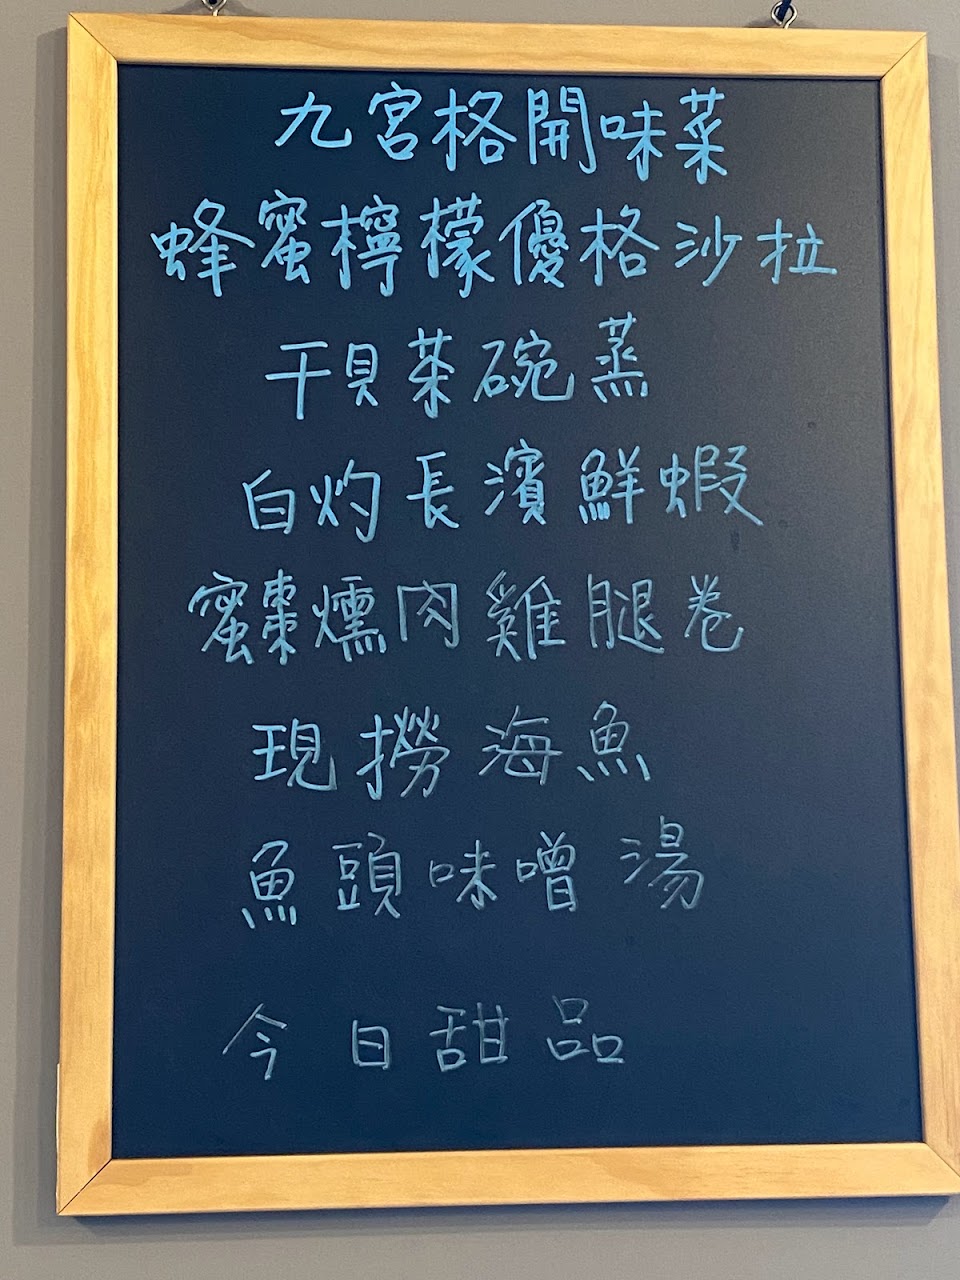 九宮格開味菜
蜂蜜檸檬優格沙拉
干貝茶碗蒸
白灼長濱鮮蝦
蜜棗燻肉雞腿卷
現撈海魚
魚頭味噌湯
今日甜品